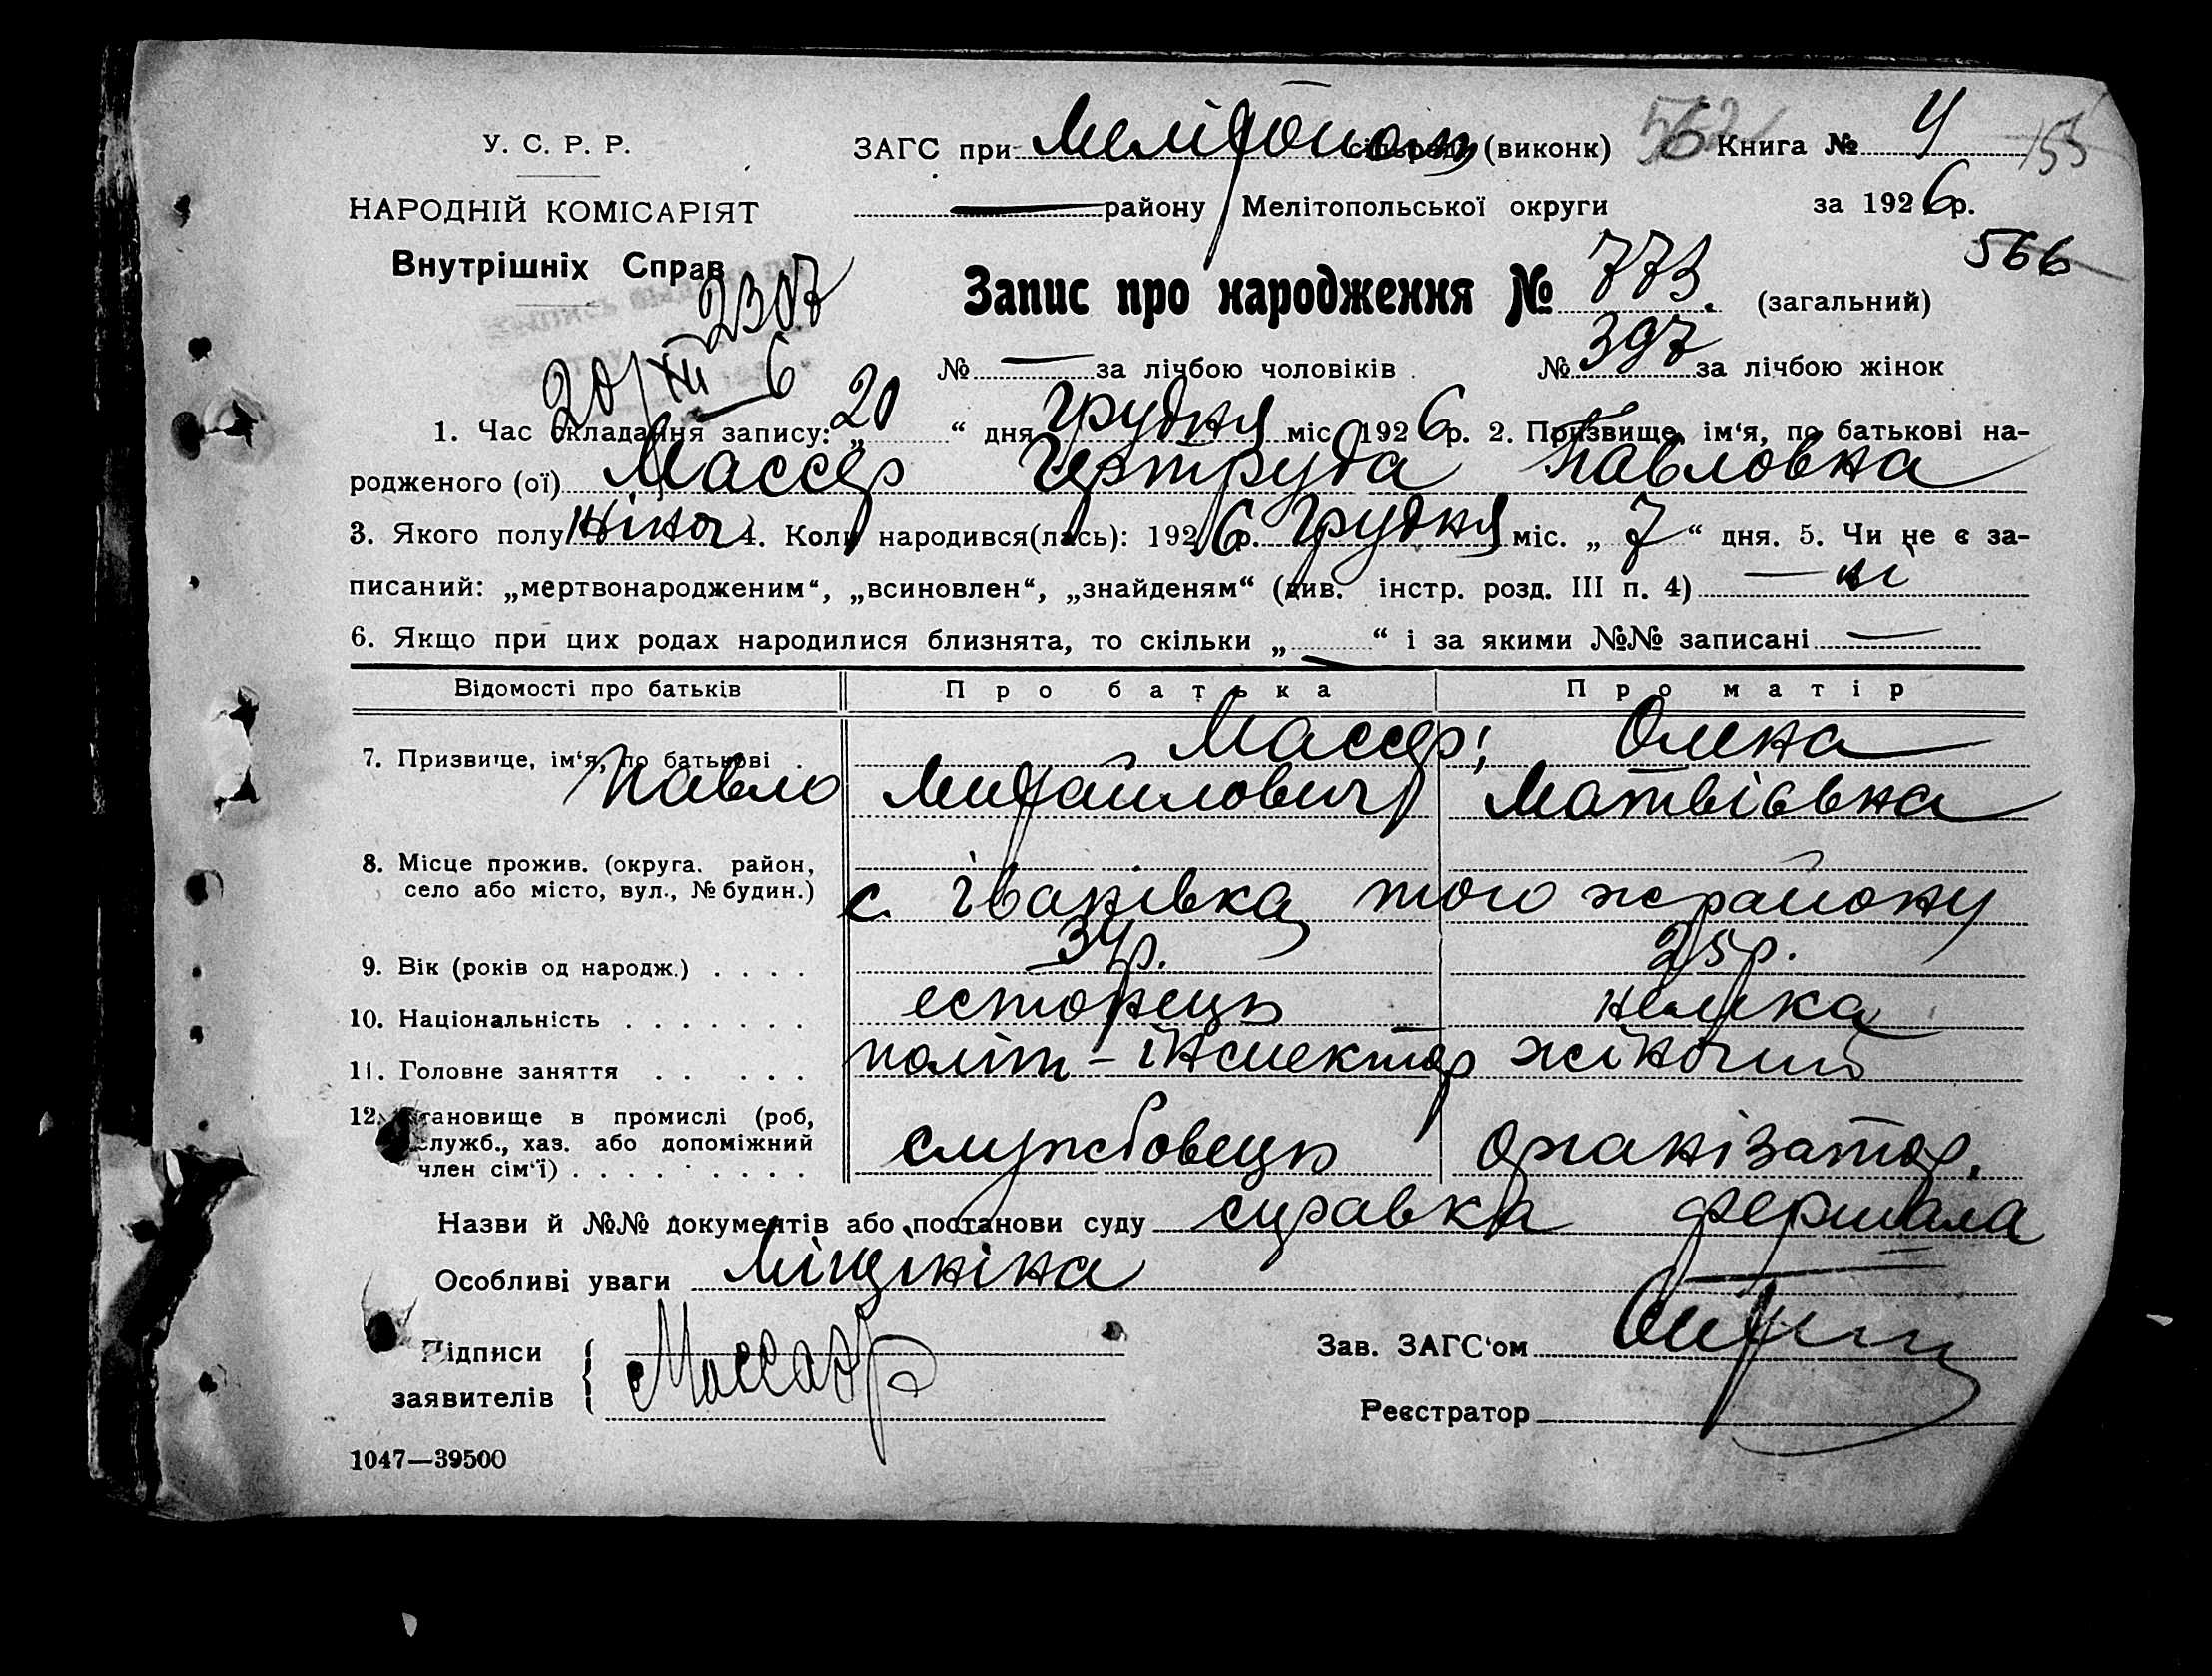 У. С. Р. Р.
НАРОДНІЙ КОМІСАРІЯТ
Внутрішніх Справ
2307
20/XII 6
ЗАГС при Мелітополь (виконк) 562 Книга № 4 155
— району Мелітопольської округи за 1926 р.
566
Запис про народження № 773. (загальний)
№ — за лічбою чоловіків. № 397 за лічбою жінок
1. Час складання запису: „20“ дня грудня міс. 1926 р. 2. Призвище, ім‘я, по батькові на-
родженого (ої) Массер Гертруда Павловна
3. Якого полу жіноч 4. Коли народився(лась): 1926 р. грудня міс. „7“ дня. 5. Чи не є за-
писаний: „мертвонародженим“, „всиновлен“, „знайденям“ (див. інстр. розд. III п. 4) — ні
6. Якщо при цих родах народилися близнята, то скільки „ — “ і за якими №№ записані —
Відомості про батьків Про батька Про матір
7. Призвище, ім‘я, по батькові . Массер; Олена
Павло Михайлович Матвієвна
8. Місце прожив. (округа, район,
село або місто, вул., № будин.) с. Іванівка того ж району
9. Вік (років од народж.) . . . . 34 р. 25 р.
10. Національність . . . . . . . естонець немка
11. Головне заняття . . . . . політ-інспектор жіночий
12. Становище в промислі (роб,
служб., хаз. або допоміжний
член сім‘ї) . . . . . . . . . службовець організатор.
Назви й №№ документів або постанови суду справка фершала
Особливі уваги Мішкіна
Підписи
заявителів { Массаар
Зав. ЗАГС‘ом
Реєстратор
1047—39500